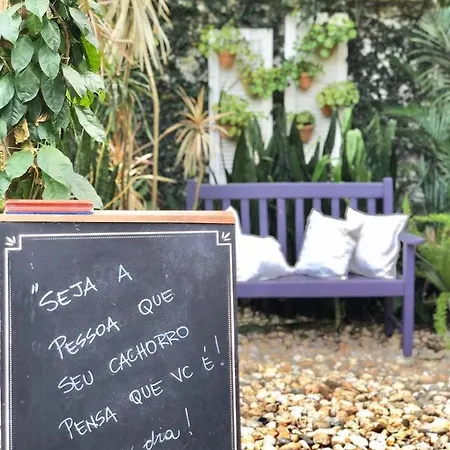 "SEJA A
PESSOA QUE
SEU CACHORRO
PENSA QUE VC É!
dia!